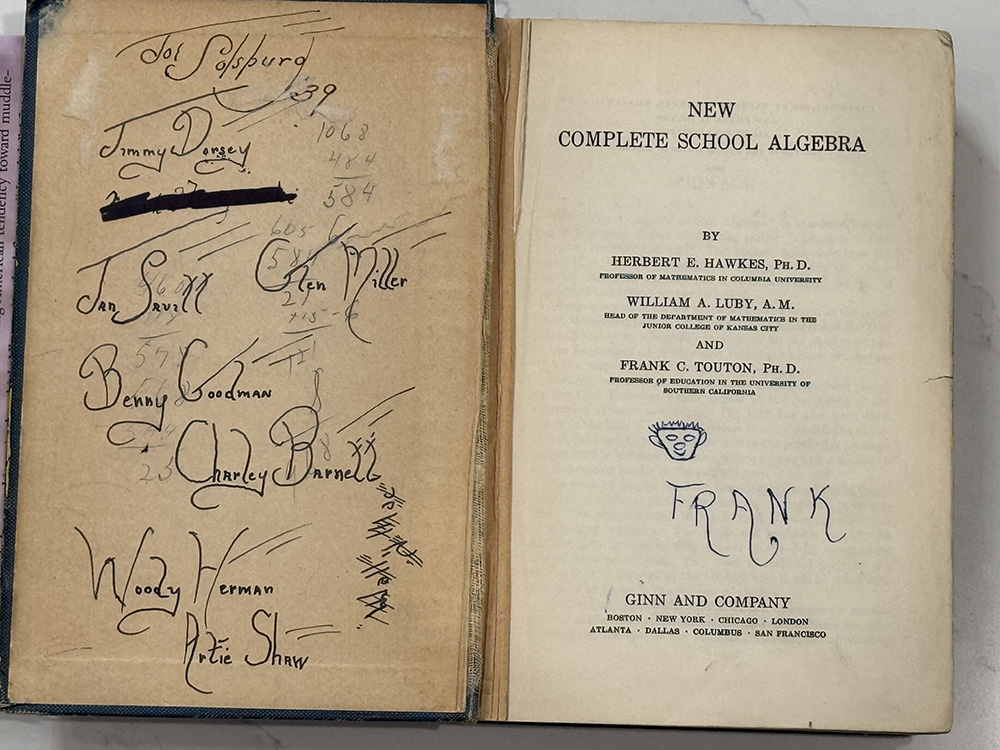 Joe Solsburd
39
Jimmy Dorsey
1068
484
584
605
Jan Savitt
Glen Miller
Benny Goodman
Charley Barnett
23
Woody Herman
Artie Shaw
American tendency toward muddle-
NEW
COMPLETE SCHOOL ALGEBRA
BY
HERBERT E. HAWKES, PH.D.
PROFESSOR OF MATHEMATICS IN COLUMBIA UNIVERSITY
WILLIAM A. LUBY, A.M.
HEAD OF THE DEPARTMENT OF MATHEMATICS IN THE
JUNIOR COLLEGE OF KANSAS CITY
AND
FRANK C. TOUTON, PH.D.
PROFESSOR OF EDUCATION IN THE UNIVERSITY OF
SOUTHERN CALIFORNIA
FRANK
GINN AND COMPANY
BOSTON · NEW YORK · CHICAGO · LONDON
ATLANTA · DALLAS · COLUMBUS · SAN FRANCISCO